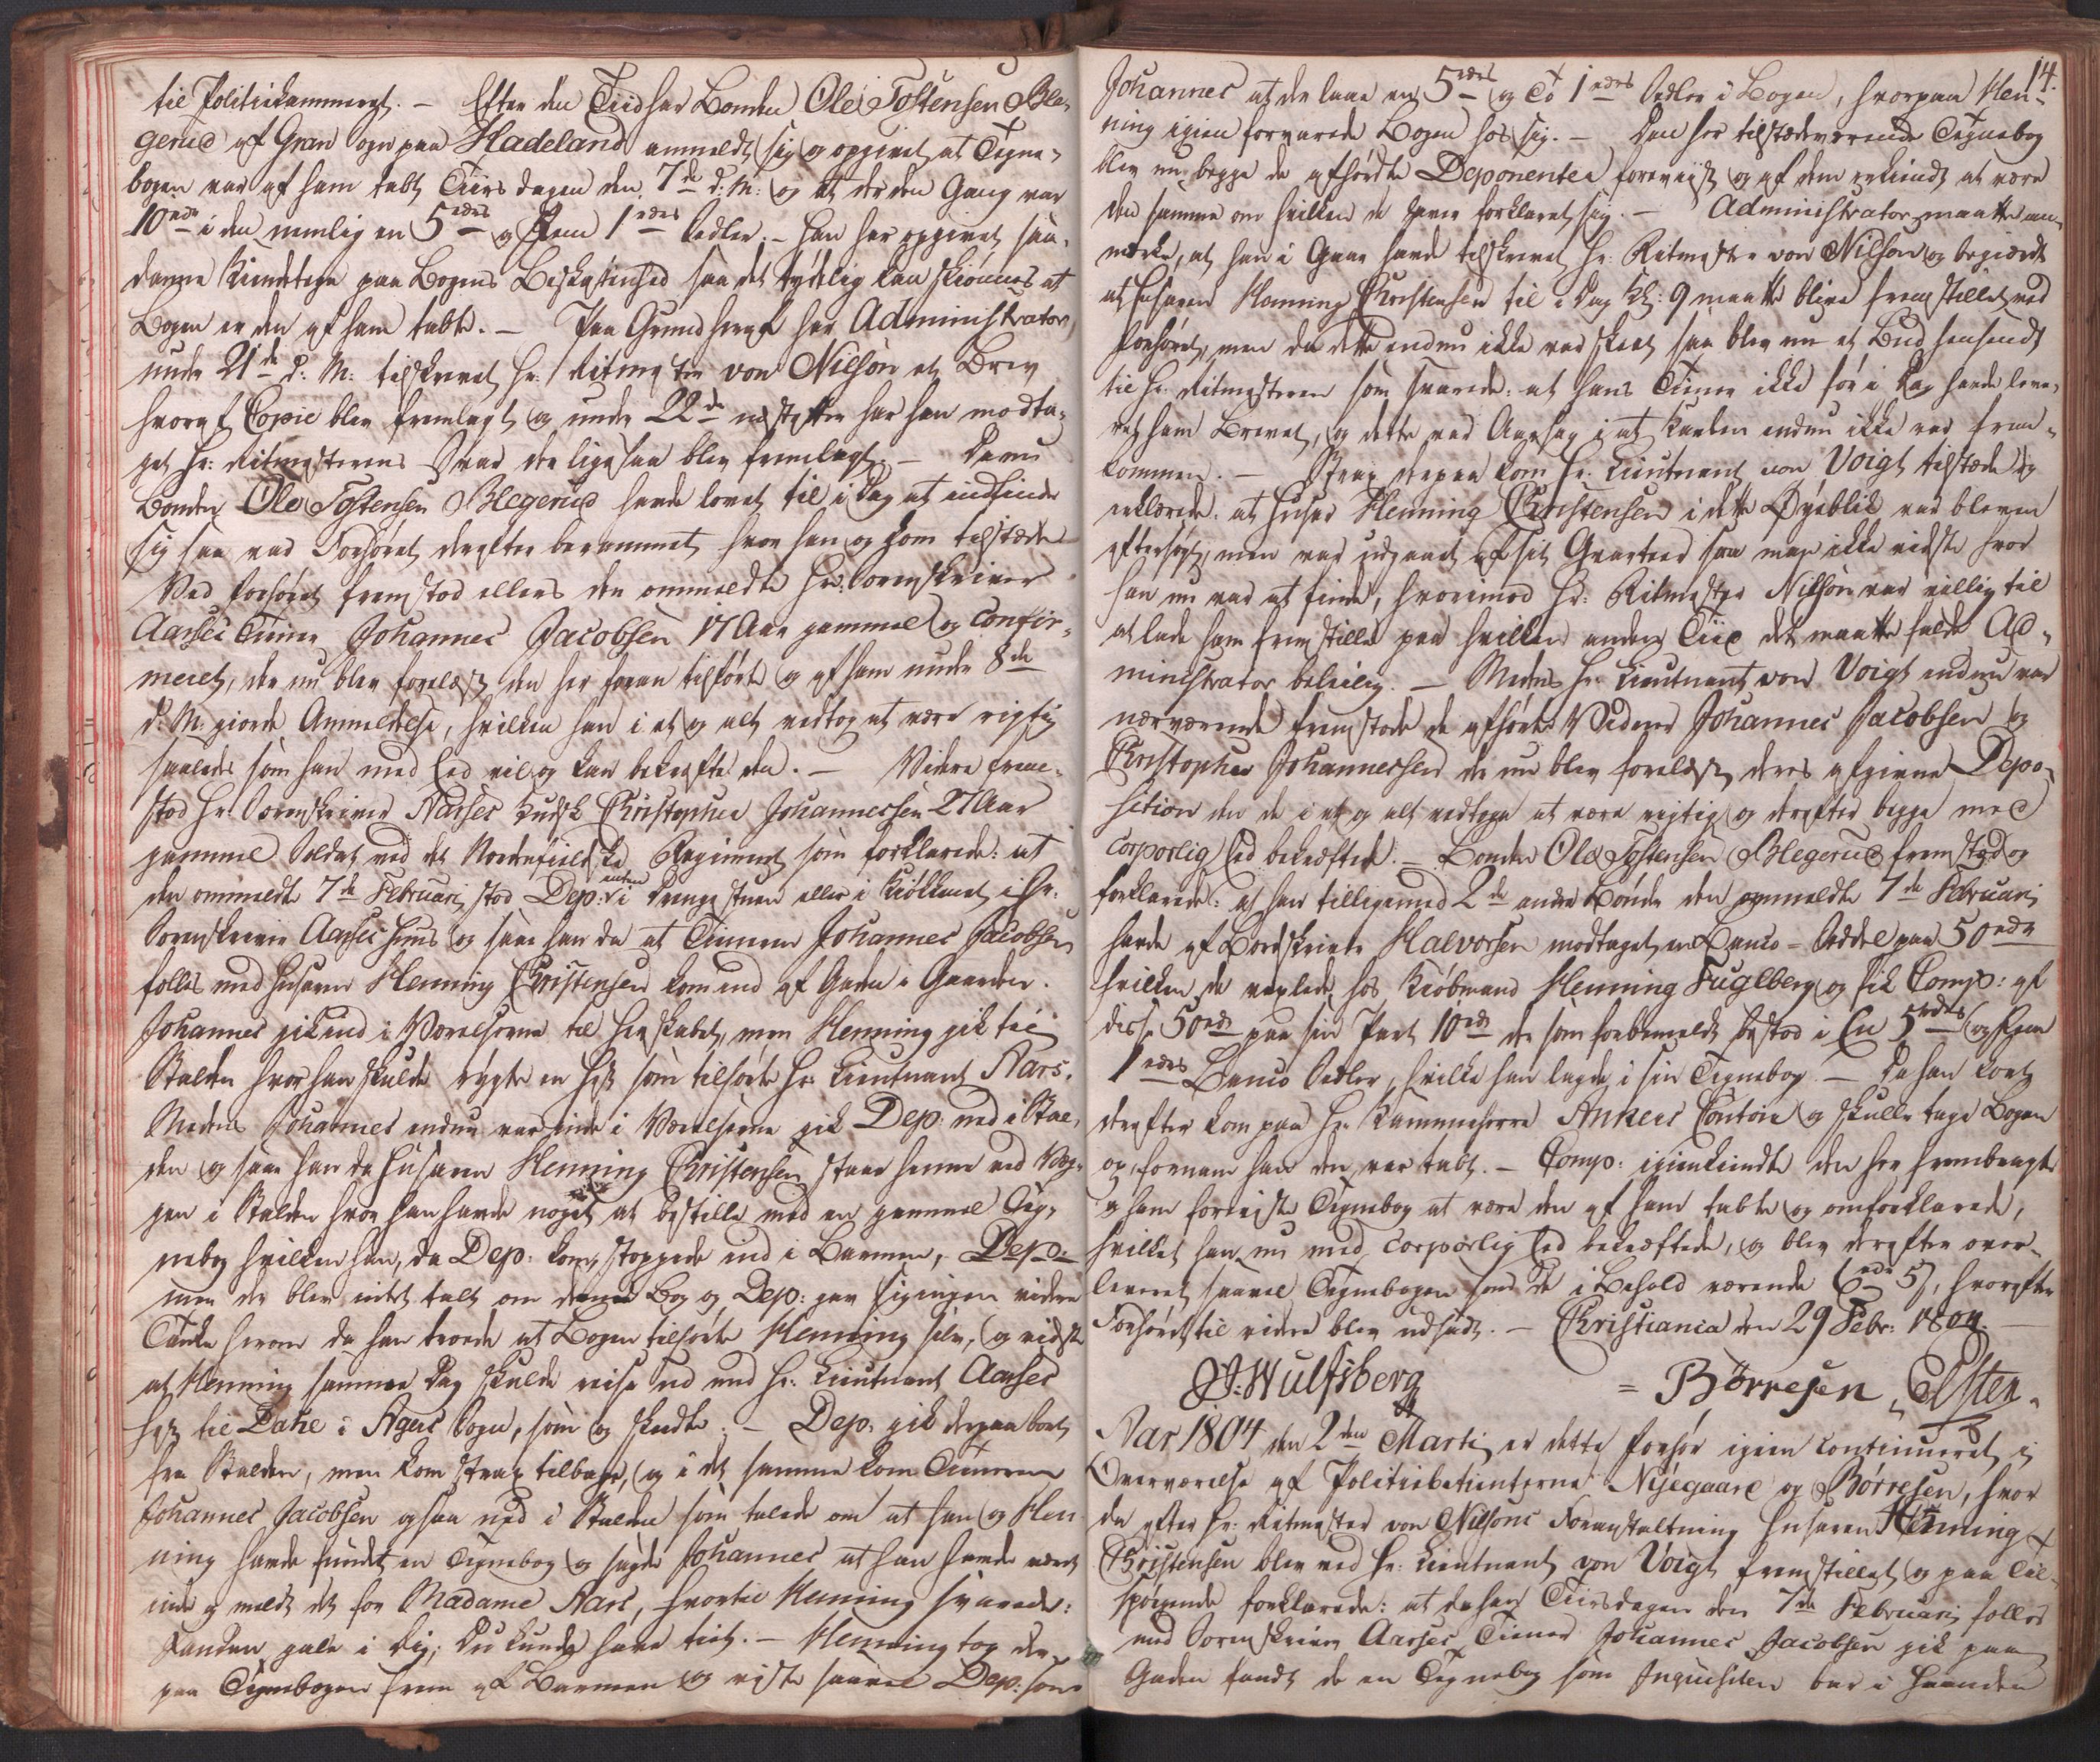 til Politiekammeret. – Efter den Tiid har Bonden Ole Tostensen Ble-
gerud af Gran Sogn paa Hadeland anmeldt sig og opgivet at Tegne-
bogen var af ham tabt Tiirsdagen den 7de d: M: og at der den Gang var
10 rdr i den nemlig en 5 rdrs og Fem 1 rdrs Sedler. – Han har opgivet saa-
danne Kiendetegn paa Bogens Beskaffenhed saa det tydelig kan skiønnes at
Bogen er den af ham tabte. – Paa Grund heraf har Administrator
under 21de d: M: tilskrevet Hr: Ritmester von Nilson et Brev
hvoraf Copie blev fremlagt og under 22de næstefter har han modta-
get Hr: Ritmesterens Svar der ligesaa blev fremlagt. – Da nu
Bonden Ole Tostensen Blegerud havde lovet til i Dag at indfinde
sig saa var Forhøret derefter berammet hvor han og kom tilstæde
Ved Forhøret fremstod ellers den ommeldte Hr: Sorenskriver
Aarses Tiener Johannes Jacobsen 17 Aar gammel og Confir-
meret, der nu blev forelæst den her foran tilførte og af ham under 8de
d: M: giorde Anmeldelse, hvilken han i et og alt vedtog at være rigtig
saaledes som han med Eed vil og kan bekræfte den. – Videre frem-
stod Hr: Sorenskriver Aarses Kudsk Christopher Johannessen 27 Aar
gammel Soldat ved det Nordenfieldske Regiment som forklarede: at
den ommeldte 7de Februari stod Dep: enten i Drengestuen eller i Kiøkkenet i Hr:
Sorenskriver Aarses Huus og saae han da at Tieneren Johannes Jacobsen
følles med Husaren Henning Christensen kom ind af Gaden i Gaarden.
Johannes gik ind i Værelserne til Herskabet, men Henning gik til
Stalden hvor han skulde rygte en Hest som tilhørte Hr: Lieutnant Aars.
Medens Johannes endnu var inde i Værelserne gik Dep: ned i Stal-
den og saae han da Husaren Henning Christensen staae henne ved Væg-
gen i Stalden hvor han havde noget at bestille med en gammel Teg-
nebog hvilken han, da Dep: kom, stoppede ind i Barmen, Dep:
men der blev intet talt om denne Bog og Dep: gav sig ingen videre
Tanke herom da han troede at Bogen tilhørte Henning selv, og vidste
at Henning samme Dag skulde reise ud med Hr: Lieutnant Aarses
Hest til Dahl i Agers Sogn, som og skeedte. – Dep: gik derpaa bort
fra Stalden, men kom strax tilbage, og i det samme kom Tieneren
Johannes Jacobsen ogsaa ned i Stalden som talede om at han og Hen-
ning havde fundet en Tegnebog og sagde Johannes at han havde været
inde og meldt det for Madame Aars, hvortil Henning svarede:
Fanden gale i dig, Du kunde have tiet. – Henning tog der-
paa Tegnebogen frem af Barmen og viste saavel Dep: som
14.
Johannes at der laae en 5 rdrs og To 1 rdrs Sedler i Bogen, hvorpaa Hen-
ning igien forvarede Bogen hos sig. – Den her tilstædeværende Tegnebog
blev nu begge de afhørdte Deponenter foreviist og af dem erkiendt at være
den samme om hvilken de have forklaret sig. – Administrator maatte an-
mærke, at han i Gaar havde tilskrevet Hr: Ritmester von Nilson og begiærdt
at Husaren Henning Christensen til i Dag Kl: 9 maatte blive fremstillet ved
Forhøret, men da dette endnu ikke var skeet saa blev nu et Bud hensendt
til Hr: Ritmesteren som svarede: at hans Tiener ikke før i Dag havde leve-
ret ham Brevet, og dette var Aarsag i at Karlen endnu ikke var frem-
kommen. – Strax derpaa kom Hr: Lieutnant von Voigt tilstæde og
erklærede: at Husar Henning Christensen i dette Øyeblik var bleven
eftersøgt, men var udgaaet af sit Qvarteer saa man ikke vidste hvor
han nu var at finde, hvorimod Hr: Ritmester Nilson var villig til
at lade ham fremstille paa hvilken anden Tiid det maatte falde Ad-
ministrator beleilig. – Medens Hr: Lieutnant von Voigt endnu var
nærværende fremstode de afhørte Vidner Johannes Jacobsen og
Christopher Johannessen der nu blev forelæst deres afgivne Depo-
sition den de i et og alt vedtoge at være rigtig og derefter begge med
corporlig Eed bekræftede. – Bonden Ole Tostensen Blegerud fremstod og
forklarede: at han tilligemed 2de andre Bønder den ommeldte 7de Februari
havde af Bordskriver Halvorsen modtaget en Banco-Seddel paa 50 rdr
hvilken de vexlede hos Kiøbmand Henning Fuglberg og fik Comp: af
disse 50 rdr paa sin Part 10 rdr der som forbemeldt bestod i En 5 rdrs og Fem
1 rdrs Banco Sedler, hvilke han lagde i sin Tegnebog. – Da han kort
derefter kom paa Hr: Kammerherre Ankers Contoir og skulle tage Bogen
op, fornam han den var tabt. – Comp: igienkiendte den her frembragte
og ham foreviste Tegnebog at være den af ham tabte og omforklarede,
hvilket han nu med corporlig Eed bekræftede, og blev derefter over-
leveret saavel Tegnebogen som de i Behold værende (rdr 5), hvorefter
Forhøret til videre blev udsadt. – Christiania den 29 Febr: 1804.
J: Wulfsberg = Børresen „ Elsten.
Aar 1804 den 2den Martii er dette Forhør igien continueret i
Overværelse af Politiebetienterne Nyegaard og Børresen, hvor
da efter Hr: Ritmester von Nilsons Foranstaltning Husaren Henning
Christensen blev ved Hr: Lieutnant von Voigt fremstillet og paa Til-
spørgende forklarede: at da han Tiirsdagen den 7de Februari følles
med Sorenskriver Aarses Tiener Johannes Jacobsen gik paa
Gaden fandt de en Tegnebog som Inquisiten bar i Haanden